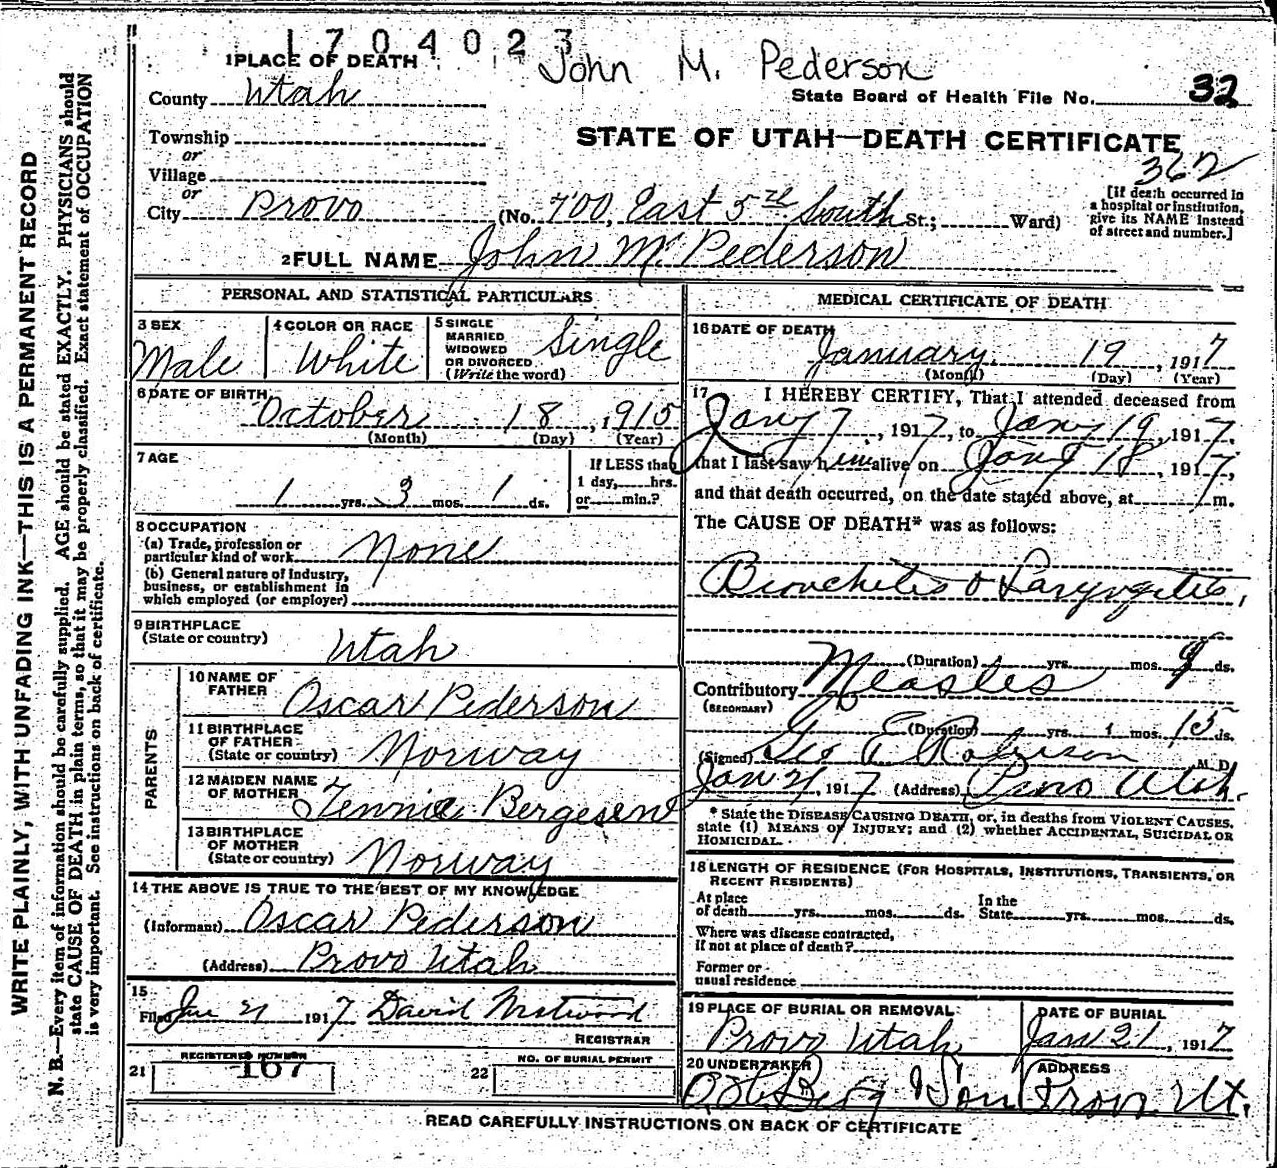 1704023
1 PLACE OF DEATH
John M. Pederson
County Utah
State Board of Health File No. 32
Township
STATE OF UTAH—DEATH CERTIFICATE
or
362
Village
or
City Provo (No. 700, East 5th South St.; Ward)
[If death occurred in
a hospital or institution,
give its NAME instead
of street and number.]
2 FULL NAME John M. Pederson
PERSONAL AND STATISTICAL PARTICULARS
3 SEX
Male
4 COLOR OR RACE
White
5 SINGLE
MARRIED
WIDOWED
OR DIVORCED
(Write the word)
Single
6 DATE OF BIRTH
October 18, 1915
(Month) (Day) (Year)
7 AGE
1 yrs. 3 mos. 1 ds.
If LESS than
1 day, hrs.
or min.?
8 OCCUPATION
(a) Trade, profession or
particular kind of work None
(b) General nature of industry,
business, or establishment in
which employed (or employer)
9 BIRTHPLACE
(State or country) Utah
PARENTS
10 NAME OF
FATHER Oscar Pederson
11 BIRTHPLACE
OF FATHER
(State or country) Norway
12 MAIDEN NAME
OF MOTHER Tennie Bergesen
13 BIRTHPLACE
OF MOTHER
(State or country) Norway
14 THE ABOVE IS TRUE TO THE BEST OF MY KNOWLEDGE
(Informant) Oscar Pederson
(Address) Provo Utah
15
Filed Jan 21 1917 David Westwood
REGISTRAR
21 REGISTERED NUMBER
167
22 NO. OF BURIAL PERMIT
MEDICAL CERTIFICATE OF DEATH
16 DATE OF DEATH
January 19, 1917
(Month) (Day) (Year)
17 I HEREBY CERTIFY, That I attended deceased from
Jany 7, 1917, to Jany 19, 1917,
that I last saw him alive on Jany 18, 1917,
and that death occurred, on the date stated above, at m.
The CAUSE OF DEATH* was as follows:
Bronchitis & Laryngitis,
(Duration) yrs. mos. 9 ds.
Contributory Measles
(SECONDARY)
(Duration) yrs. mos. 15 ds.
(Signed) Geo E Robison M.D.
Jan 21, 1917 (Address) Provo Utah.
* State the DISEASE CAUSING DEATH, or, in deaths from VIOLENT CAUSES,
state (1) MEANS OF INJURY; and (2) whether ACCIDENTAL, SUICIDAL OR
HOMICIDAL.
18 LENGTH OF RESIDENCE (FOR HOSPITALS, INSTITUTIONS, TRANSIENTS, OR
RECENT RESIDENTS)
At place
of death yrs. mos. ds.
In the
State yrs. mos. ds.
Where was disease contracted,
if not at place of death?
Former or
usual residence
19 PLACE OF BURIAL OR REMOVAL
Provo Utah
DATE OF BURIAL
Jan 21, 1917
20 UNDERTAKER
Berg & Son
ADDRESS
Provo Ut.
READ CAREFULLY INSTRUCTIONS ON BACK OF CERTIFICATE
WRITE PLAINLY, WITH UNFADING INK—THIS IS A PERMANENT RECORD
N. B.—Every item of information should be carefully supplied. AGE should be stated EXACTLY. PHYSICIANS should
state CAUSE OF DEATH in plain terms, so that it may be properly classified. Exact statement of OCCUPATION
is very important. See instructions on back of certificate.